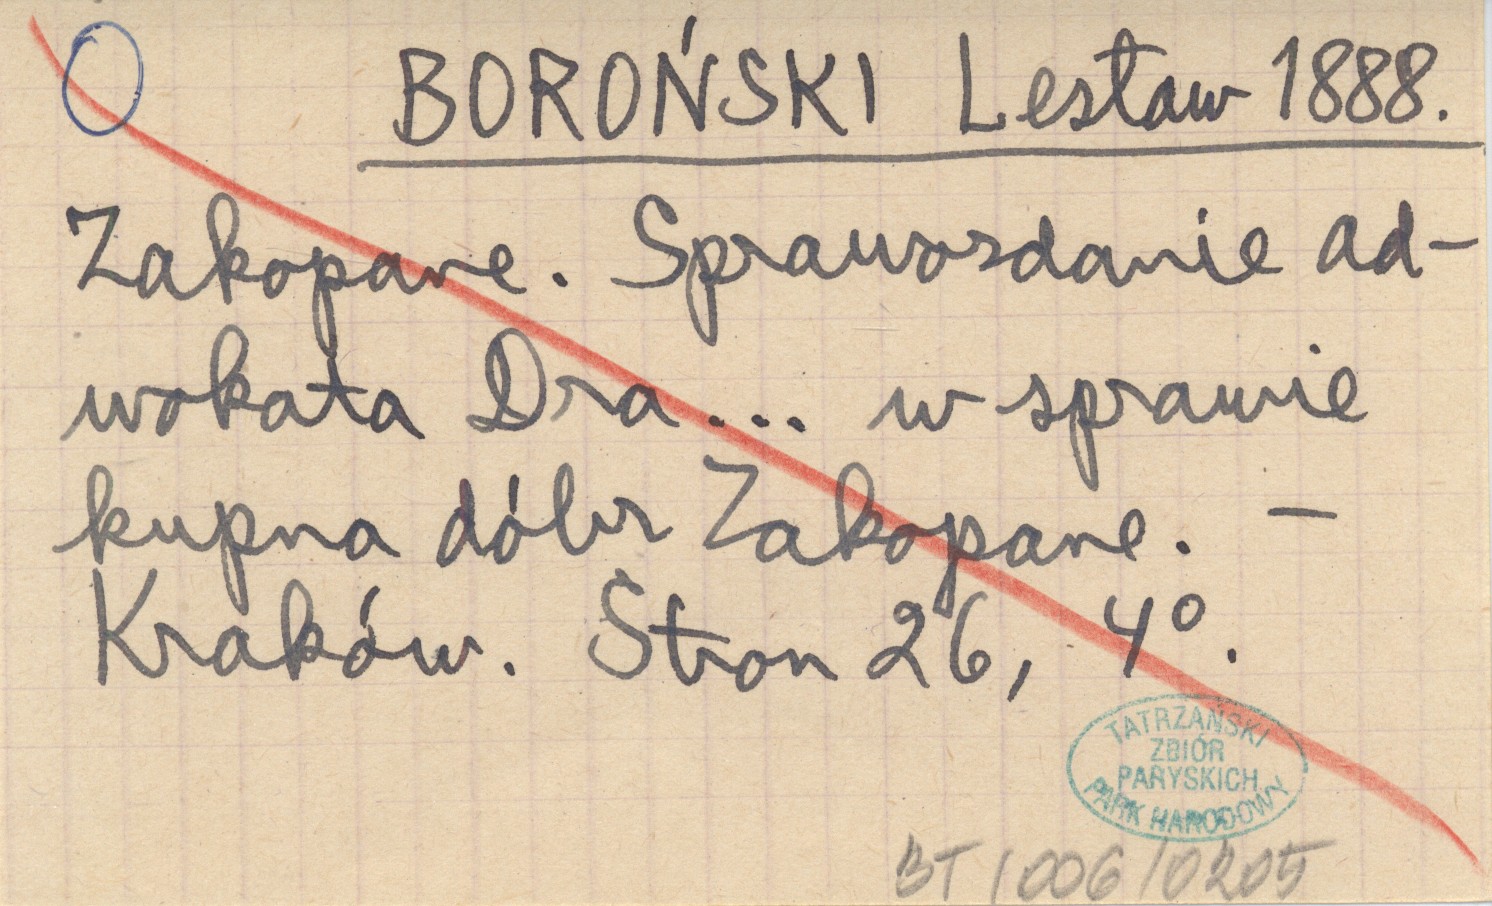 BOROŃSKI Lesław 1888.
Zakopane. Sprawozdanie ad-
wokata Dra... w sprawie
kupna dóbr Zakopane. —
Kraków. Stron 26, 4°.
TATRZAŃSKI
ZBIÓR
PARYSKICH
PARK NARODOWY
BT/006/0205